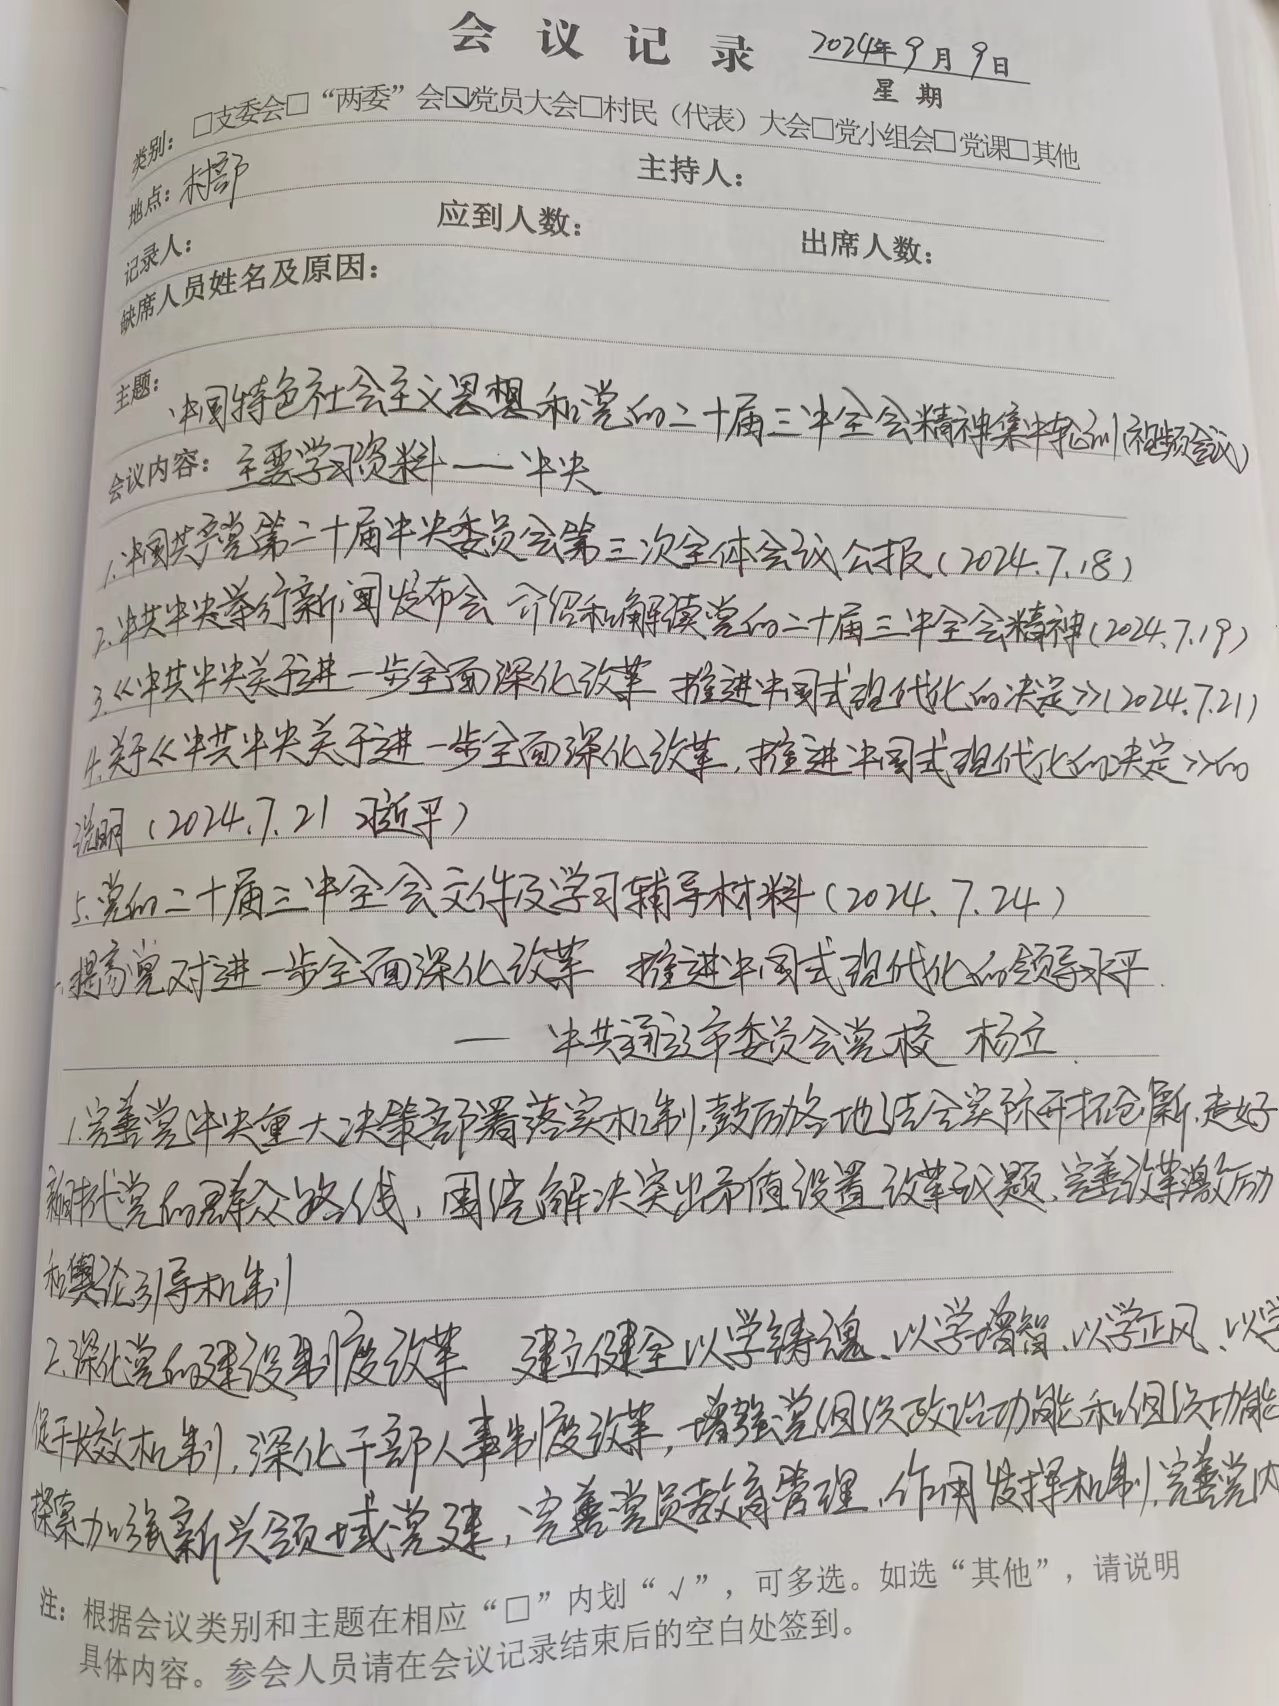 会议记录 2024年9月9日
星期
类别：□支委会□“两委”会☑党员大会□村民（代表）大会□党小组会□党课□其他
地点：村部 主持人：
记录人： 应到人数： 出席人数：
缺席人员姓名及原因：
主题：中国特色社会主义思想和党的二十届三中全会精神集中轮训(视频会议)
会议内容：主要学习资料——中央
1.中国共产党第二十届中央委员会第三次全体会议公报(2024.7.18)
2.中共中央举行新闻发布会 介绍和解读党的二十届三中全会精神(2024.7.19)
3.《中共中央关于进一步全面深化改革 推进中国式现代化的决定》(2024.7.21)
4.关于《中共中央关于进一步全面深化改革，推进中国式现代化的决定》的
说明(2024.7.21 习近平)
5.党的二十届三中全会文件及学习辅导材料(2024.7.24)
一.提高党对进一步全面深化改革 推进中国式现代化的领导水平.
— 中共通辽市委员会党校 杨立
1.完善党中央重大决策部署落实机制,鼓励各地结合实际开拓创新,走好
新时代党的群众路线，围绕解决突出矛盾设置改革议题、完善改革激励
和舆论引导机制
2.深化党的建设制度改革 建立健全以学铸魂、以学增智、以学正风、以学
促干长效机制,深化干部人事制度改革,增强党组织政治功能和组织功能
探索加强新兴领域党建,完善党员教育管理、作用发挥机制,完善党内
注：根据会议类别和主题在相应“□”内划“√”，可多选。如选“其他”，请说明
具体内容。参会人员请在会议记录结束后的空白处签到。